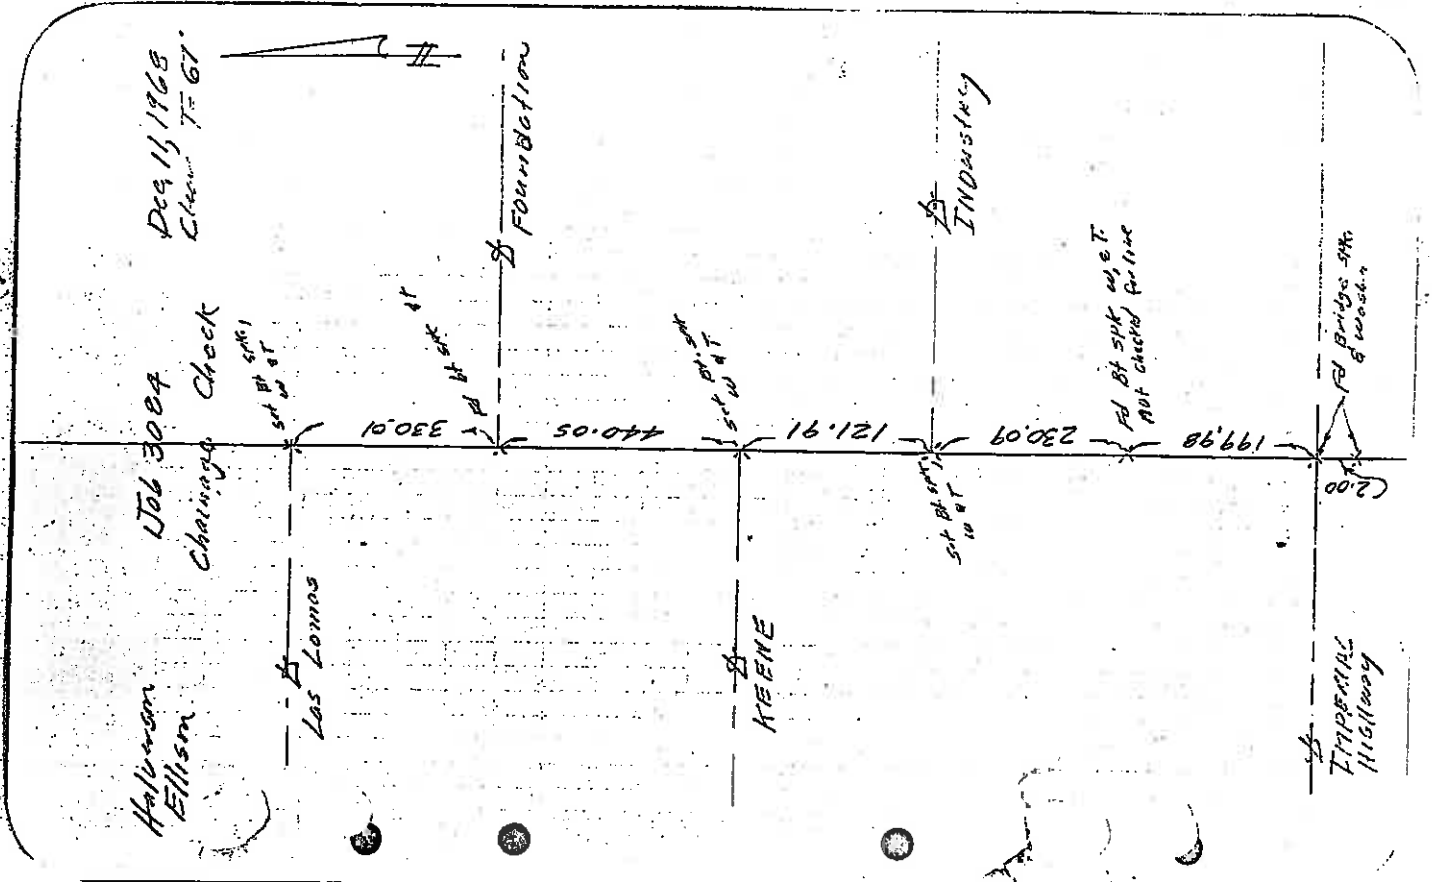 Ellison
Job 3084
Chaining Check
Dec, 11, 1968
Clear T=61°
Las Lomas
set Bt spk,
w &T
330.01
Fd bt spk &T
Foundation
440.05
set Bt. spk
w &T
KEENE
121.91
set Bt spk
w &T
INDUSTRY
230.09
Fd Bt spk w, &T.
Not checked for line
199.98
Fd Bridge spk.
& wash.
2.00
IMPERIAL
HIGHWAY